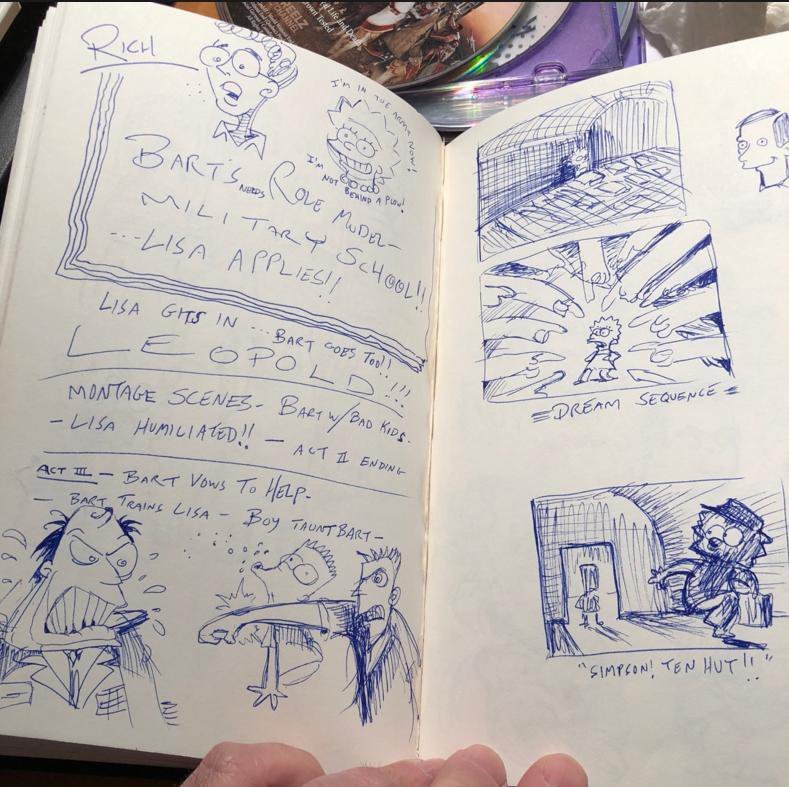 RICH
I'M IN THE ARMY NOW!
I'M
NOT BEHIND A PLOW!
BART'S NEEDS ROLE MODEL-
MILITARY SCHOOL!!
...LISA APPLIES!!
LISA GETS IN ... BART GOES TOO!!
LEOPOLD!!!
MONTAGE SCENES- BART W/ BAD KIDS.
- LISA HUMILIATED!! - ACT II ENDING
ACT III - BART VOWS TO HELP-
- BART TRAINS LISA - BOY TAUNT BART-
=DREAM SEQUENCE=
"SIMPSON! TEN HUT!!"